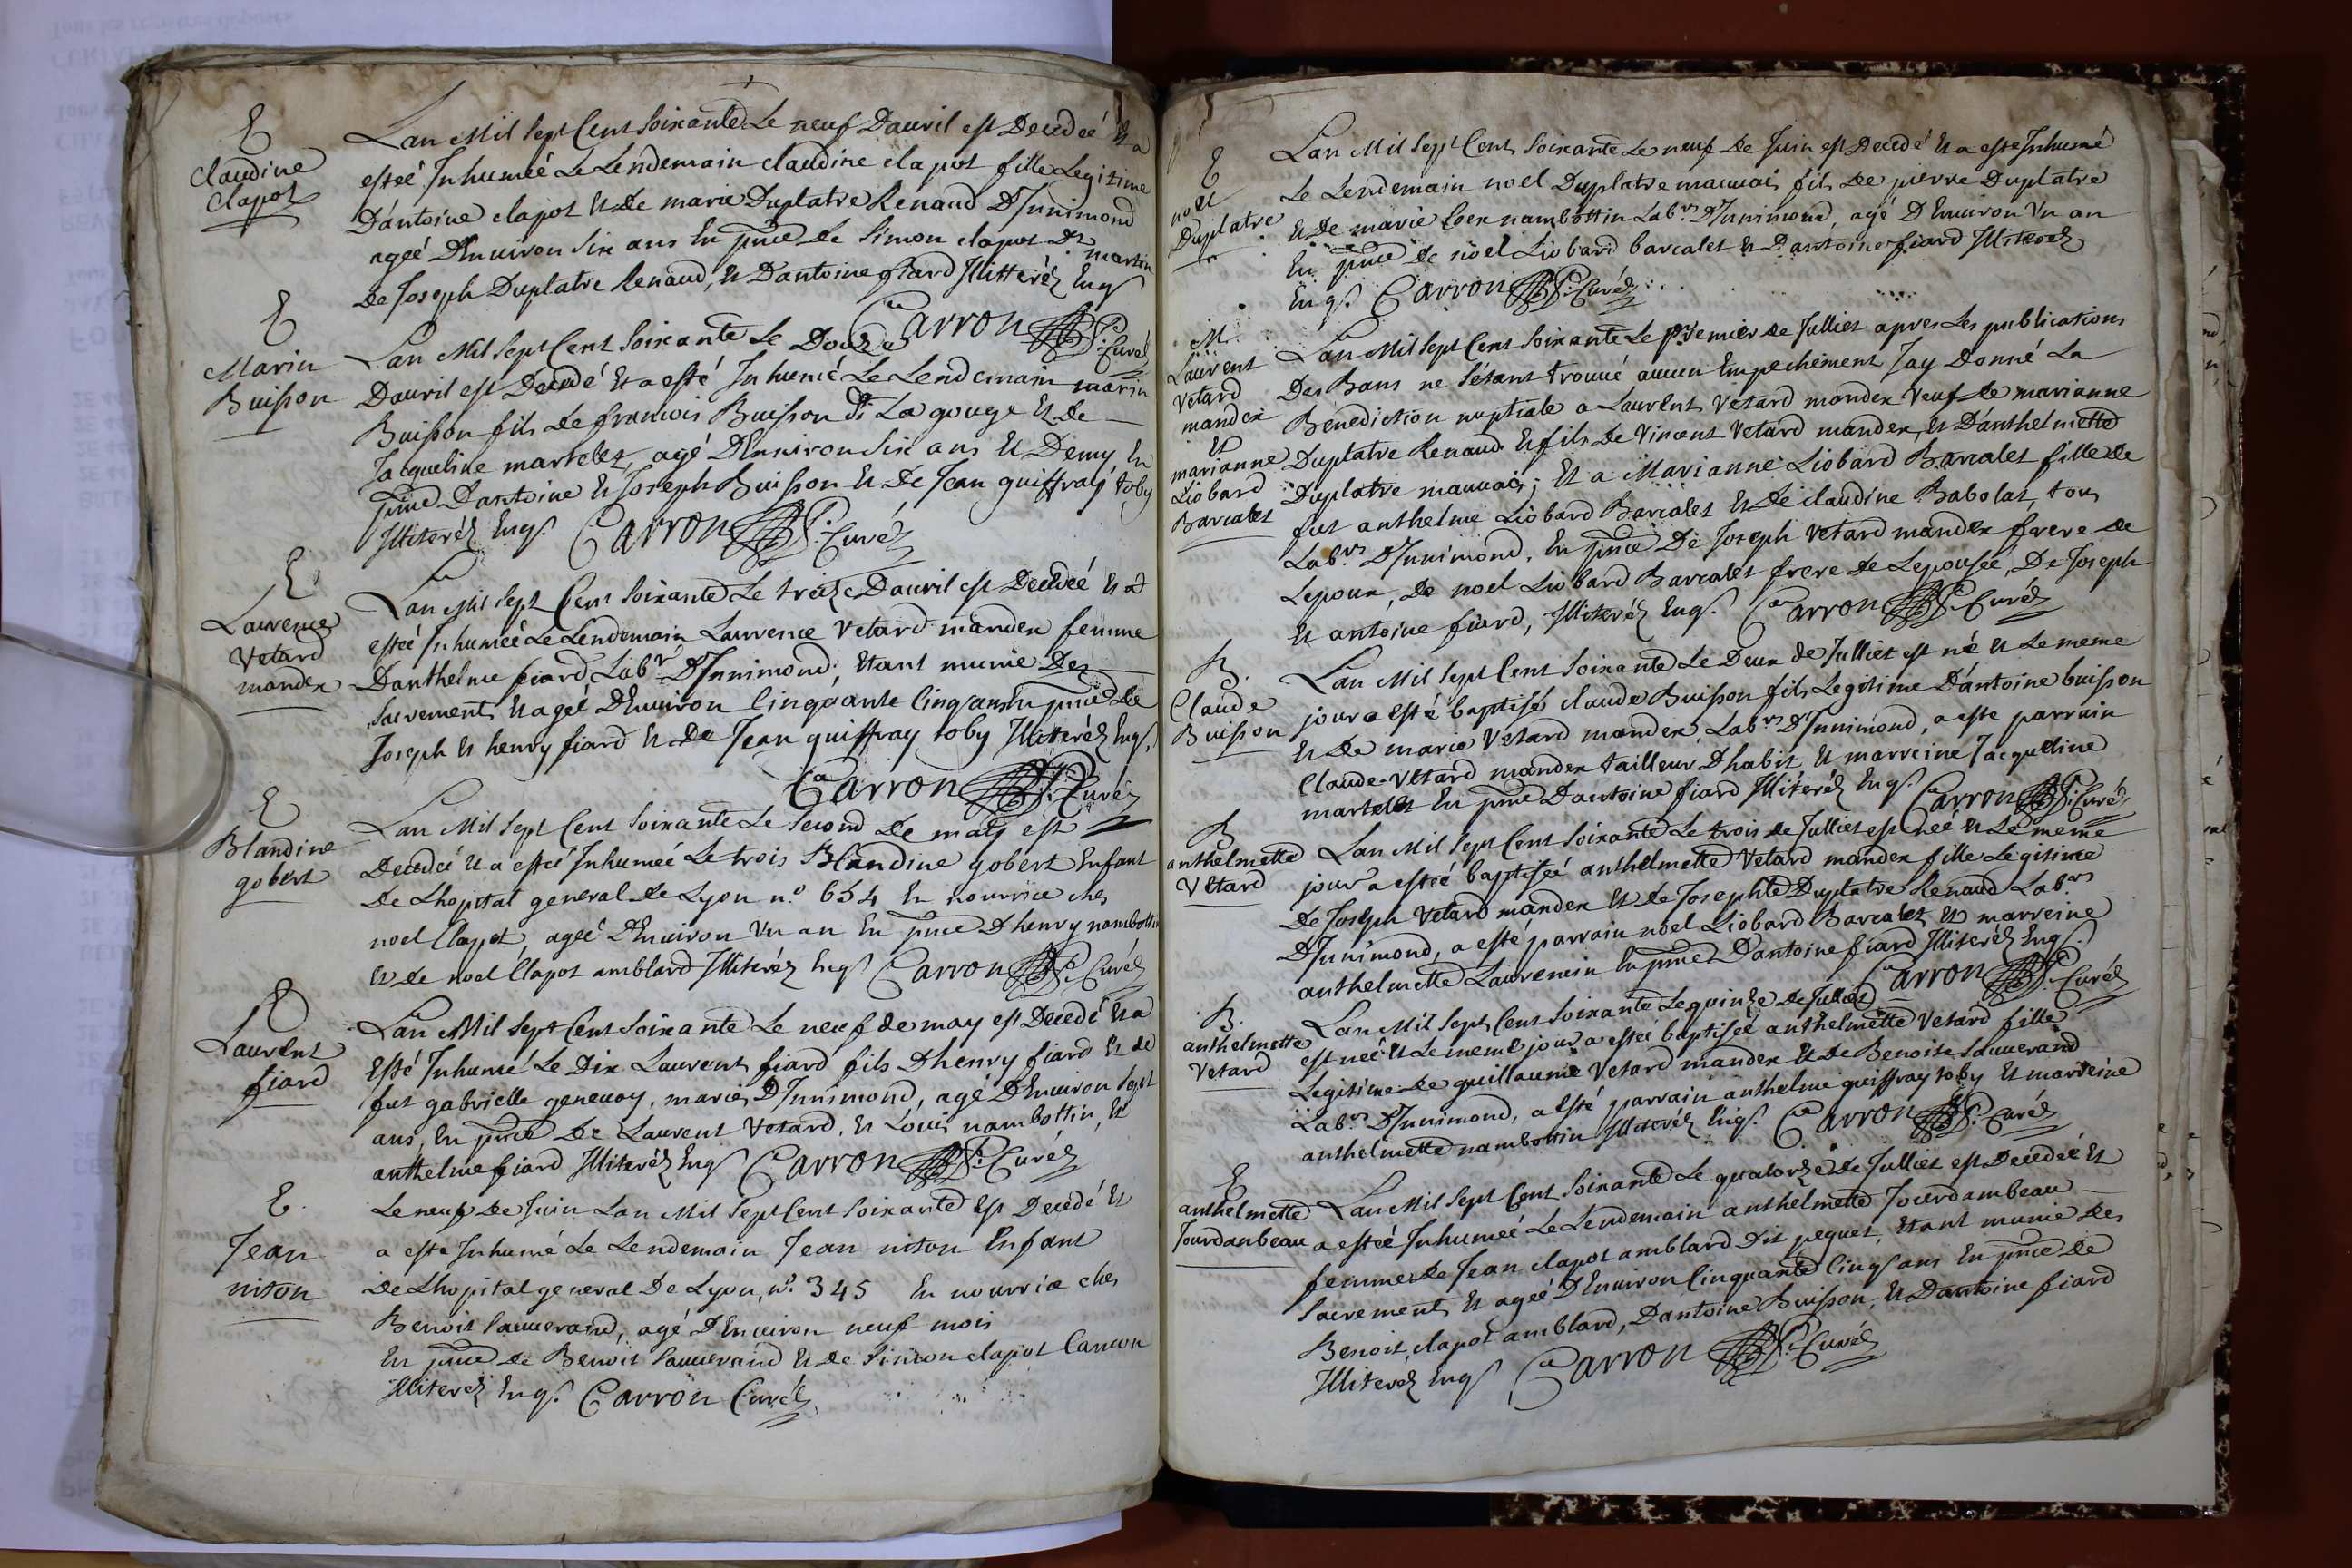 E
Claudine
Clapot
Lan Mil Sept Cent Soixante Le neuf Dauril est Decedeé Et a
esteé Inhumeé Le Lendemain claudine clapot fille Legitime
Dantoine clapot Et de marie Duplatre Renaud DInnimond
ageé DEnuiron Six ans En pnce de Simon clapot Dt martin
De Joseph Duplatre Renaud, Et Dantoine fiard Illitteréz Enqs
Carron Curé
E
Marin
Buisson
Lan Mil Sept Cent Soixante Le Douze
Dauril est Decedé Et a esté Inhumé Le Lendemain marin
Buisson fils de francois Buisson dt La gouge Et de
Jacqueline martelet, agé DEnuiron Six ans Et Demy En
pnce Dantoine Et Joseph Buisson Et De Jean guiffray toby
Illiteréz Enqs. Carron Curé
E
Laurence
Vetard
mandex
Lan Mil Sept Cent Soixante Le treize Dauril est Decedeé Et a
esteé Inhumeé Le Lendemain Laurence Vetard mandex femme
Danthelme fiard, Labr DInnimond, Etant munie Des
Sacrements Et ageé DEnuiron Cinquante Cinq ans En pnce De
Joseph Et henry fiard Et de Jean guiffray toby Illiteréz Enqs.
Carron Curé
E
Blandine
gobert
Lan Mil Sept Cent Soixante Le Second De may est
Decedeé Et a esteé Inhumeé Le trois Blandine gobert Enfant
De Lhopital general de Lyon n.o 654 En nourrice ches
noel Clapot, ageé DEnuiron Vn an En pnce Dhenry nambottin
Et de noel Clapot amblard Illiteréz Enqs Carron Curé
E
Laurent
fiard
Lan Mil Sept Cent Soixante Le neuf de may est Decedé Et a
Esté Inhumé Le Dix Laurent fiard fils Dhenry fiard Et de
fut gabrielle geneuay, mariés DInnimond, agé DEnuiron Sept
ans, En pnce De Laurent Vetard, Et Louis nambottin, Et
anthelme fiard Illiteréz Enqs Carron Curé
E.
Jean
niton
Le neuf De Juin Lan Mil Sept Cent Soixante Est Decedé Et
a esté Inhumé Le Lendemain Jean niton Enfant
De Lhopital general De Lyon, n.o 345 En nourrice ches
Benoit Sauuerand, agé DEnuiron neuf mois
En pnce de Benoit Sauuerand Et de Simon clapot
Illiteréz Enqs. Carron Curé
E
noel
Duplatre
Lan Mil Sept Cent Soixante Le neuf De Juin est Decedé Et a esté Inhumé
Le Lendemain noel Duplatre mauuais fils De pierre Duplatre
Et De marie nambottin Labrs DInnimond, agé DEnuiron Vn an
En pnce de noel Liobard barcalet Et Dantoine fiard Illiteréz
Enqs. Carron Curé
M
Laurent
Vetard
mandex
Et
marianne
Liobard
Barcalet
Lan Mil Sept Cent Soixante Le premier de Julliet apres Les publications
Des Bans ne Sétant trouué aucun Empechement Jay Donné La
Benediction nuptiale a Laurent Vetard mandex Veuf de marianne
Duplatre Renaud Et fils De Vincent Vetard mandex, Et Danthelmette
Duplatre mauuais; Et a Marianne Liobard Barcalet fille de
fut anthelme Liobard Barcalet Et De claudine Babolat, tous
Labrs DInnimond, En pnce De Joseph Vetard mandex frere de
Lepoux, De noel Liobard Barcalet frere de Lepouseé, De Joseph
Et antoine fiard, Illiteréz Enqs. Carron Curé
B.
Claude
Buisson
Lan Mil Sept Cent Soixante Le Deux de Julliet est né Et Le meme
jour a esté baptisé claude Buisson fils Legitime Dantoine buisson
Et De marie Vetard mandex Labrs DInnimond, a esté parrain
Claude Vetard mandex tailleur Dhabit Et marreine Jacqueline
martelet En pnce Dantoine fiard Illiteréz Enqs. Carron Curé
B
anthelmette
Vetard
Lan Mil Sept Cent Soixante Le trois de Julliet est neé Et Le meme
jour a esteé baptiseé anthelmette Vetard mandex fille Legitime
De Joseph Vetard mandex Et de Josephte Duplatre Renaud Labrs
DInnimond, a esté parrain noel Liobard Barcalet, Et marreine
anthelmette Laurencin En pnce Dantoine fiard Illiteréz Enqs.
Carron Curé
B.
anthelmette
Vetard
Lan Mil Sept Cent Soixante Le quinze De Julliet
est neé Et Le meme jour a esteé baptiseé anthelmette Vetard fille
Legitime de guillaume Vetard mandex Et De Benoite Sauuerand
Labrs DInnimond, a esté parrain anthelme guiffray toby Et marreine
anthelmette nambottin Illiteréz Enqs. Carron Curé
E
anthelmette
Jourdanbeau
Lan Mil Sept Cent Soixante Le quatorze De Julliet est Decedeé Et
a esteé Inhumeé Le Lendemain anthelmette Jourdambeau
femme de Jean clapot amblard Dit peguet, Etant munie des
Sacrements Et ageé DEnuiron Cinquante Cinq ans En pnce de
Benoit clapot amblard, Dantoine Buisson, Et Dantoine fiard
Illiteréz Enqs Carron Curé